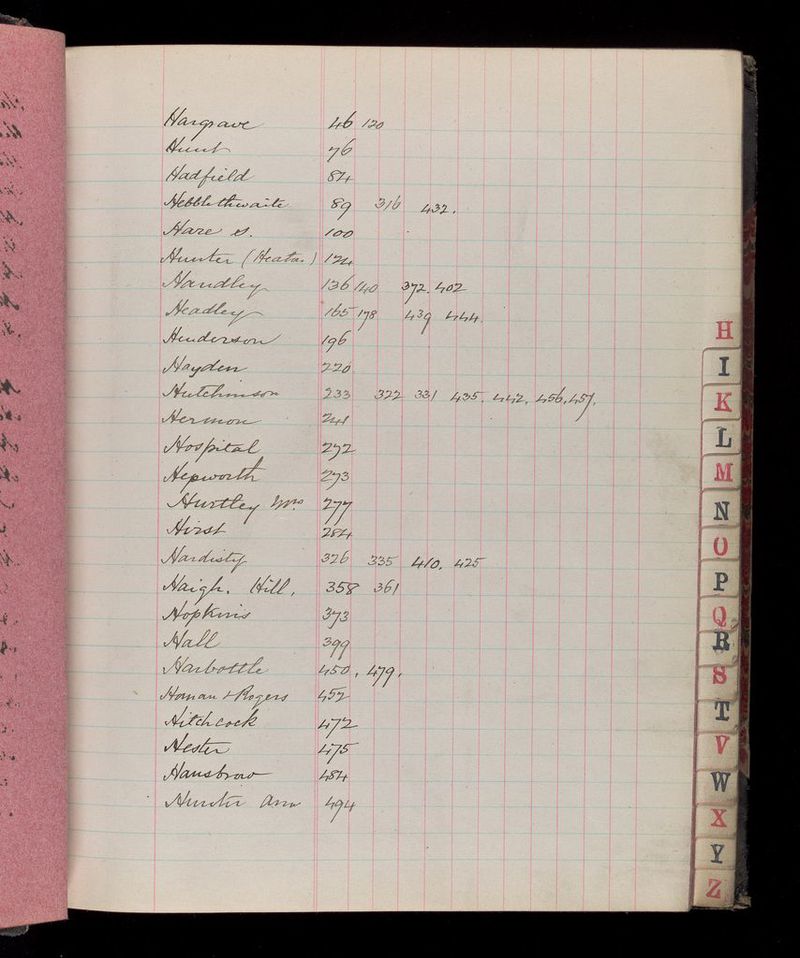 Hargrave 46 120
Hunt 76
Hadfield 84
Hebblethwaite 89 316 432.
Hare S. 100
Hunter (Heaton) 124
Handley 136 140 372. 402
Headley 165 178 439 444.
Henderson 196
Hayden 220
Hutchinson 233 322 331 435. 442. 456. 457.
Hermon 241
Hospital 272
Hepworth 273
Hurtley Mrs 277
Hirst 284
Hardisty 326 335 410. 425
Haigh. Hill. 358 361
Hopkins 373
Hall 399
Harbottle 450. 479.
Homan & Rogers 452
Hitchcock 472
Hester 475
Hansbrow 484
Hunter Ann 494
H
I
K
L
M
N
O
P
Q
R
S
T
V
W
X
Y
Z